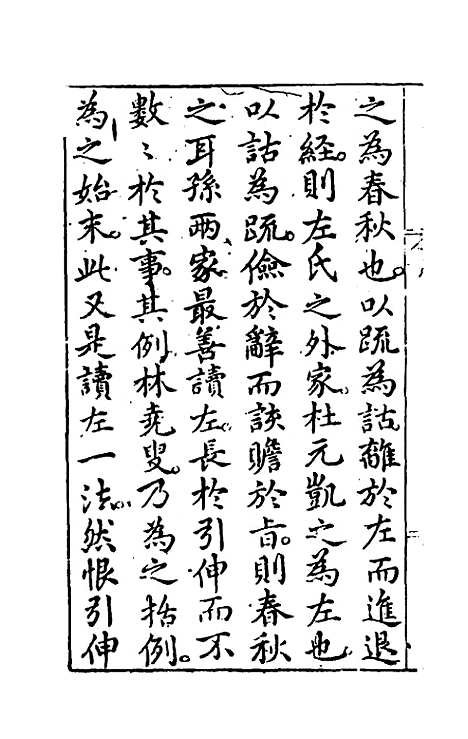 之為春秋也。以疏為詁離於左而進退
於經。則左氏之外家。杜元凱之為左也
以詁為疏。儉於辭而詼贍於旨。則春秋
之耳孫兩家最善讀左。長於引伸而不
數〻於其事。其例林堯叟。乃為之括例。
為之始末。此又是讀左一法。然恨引伸